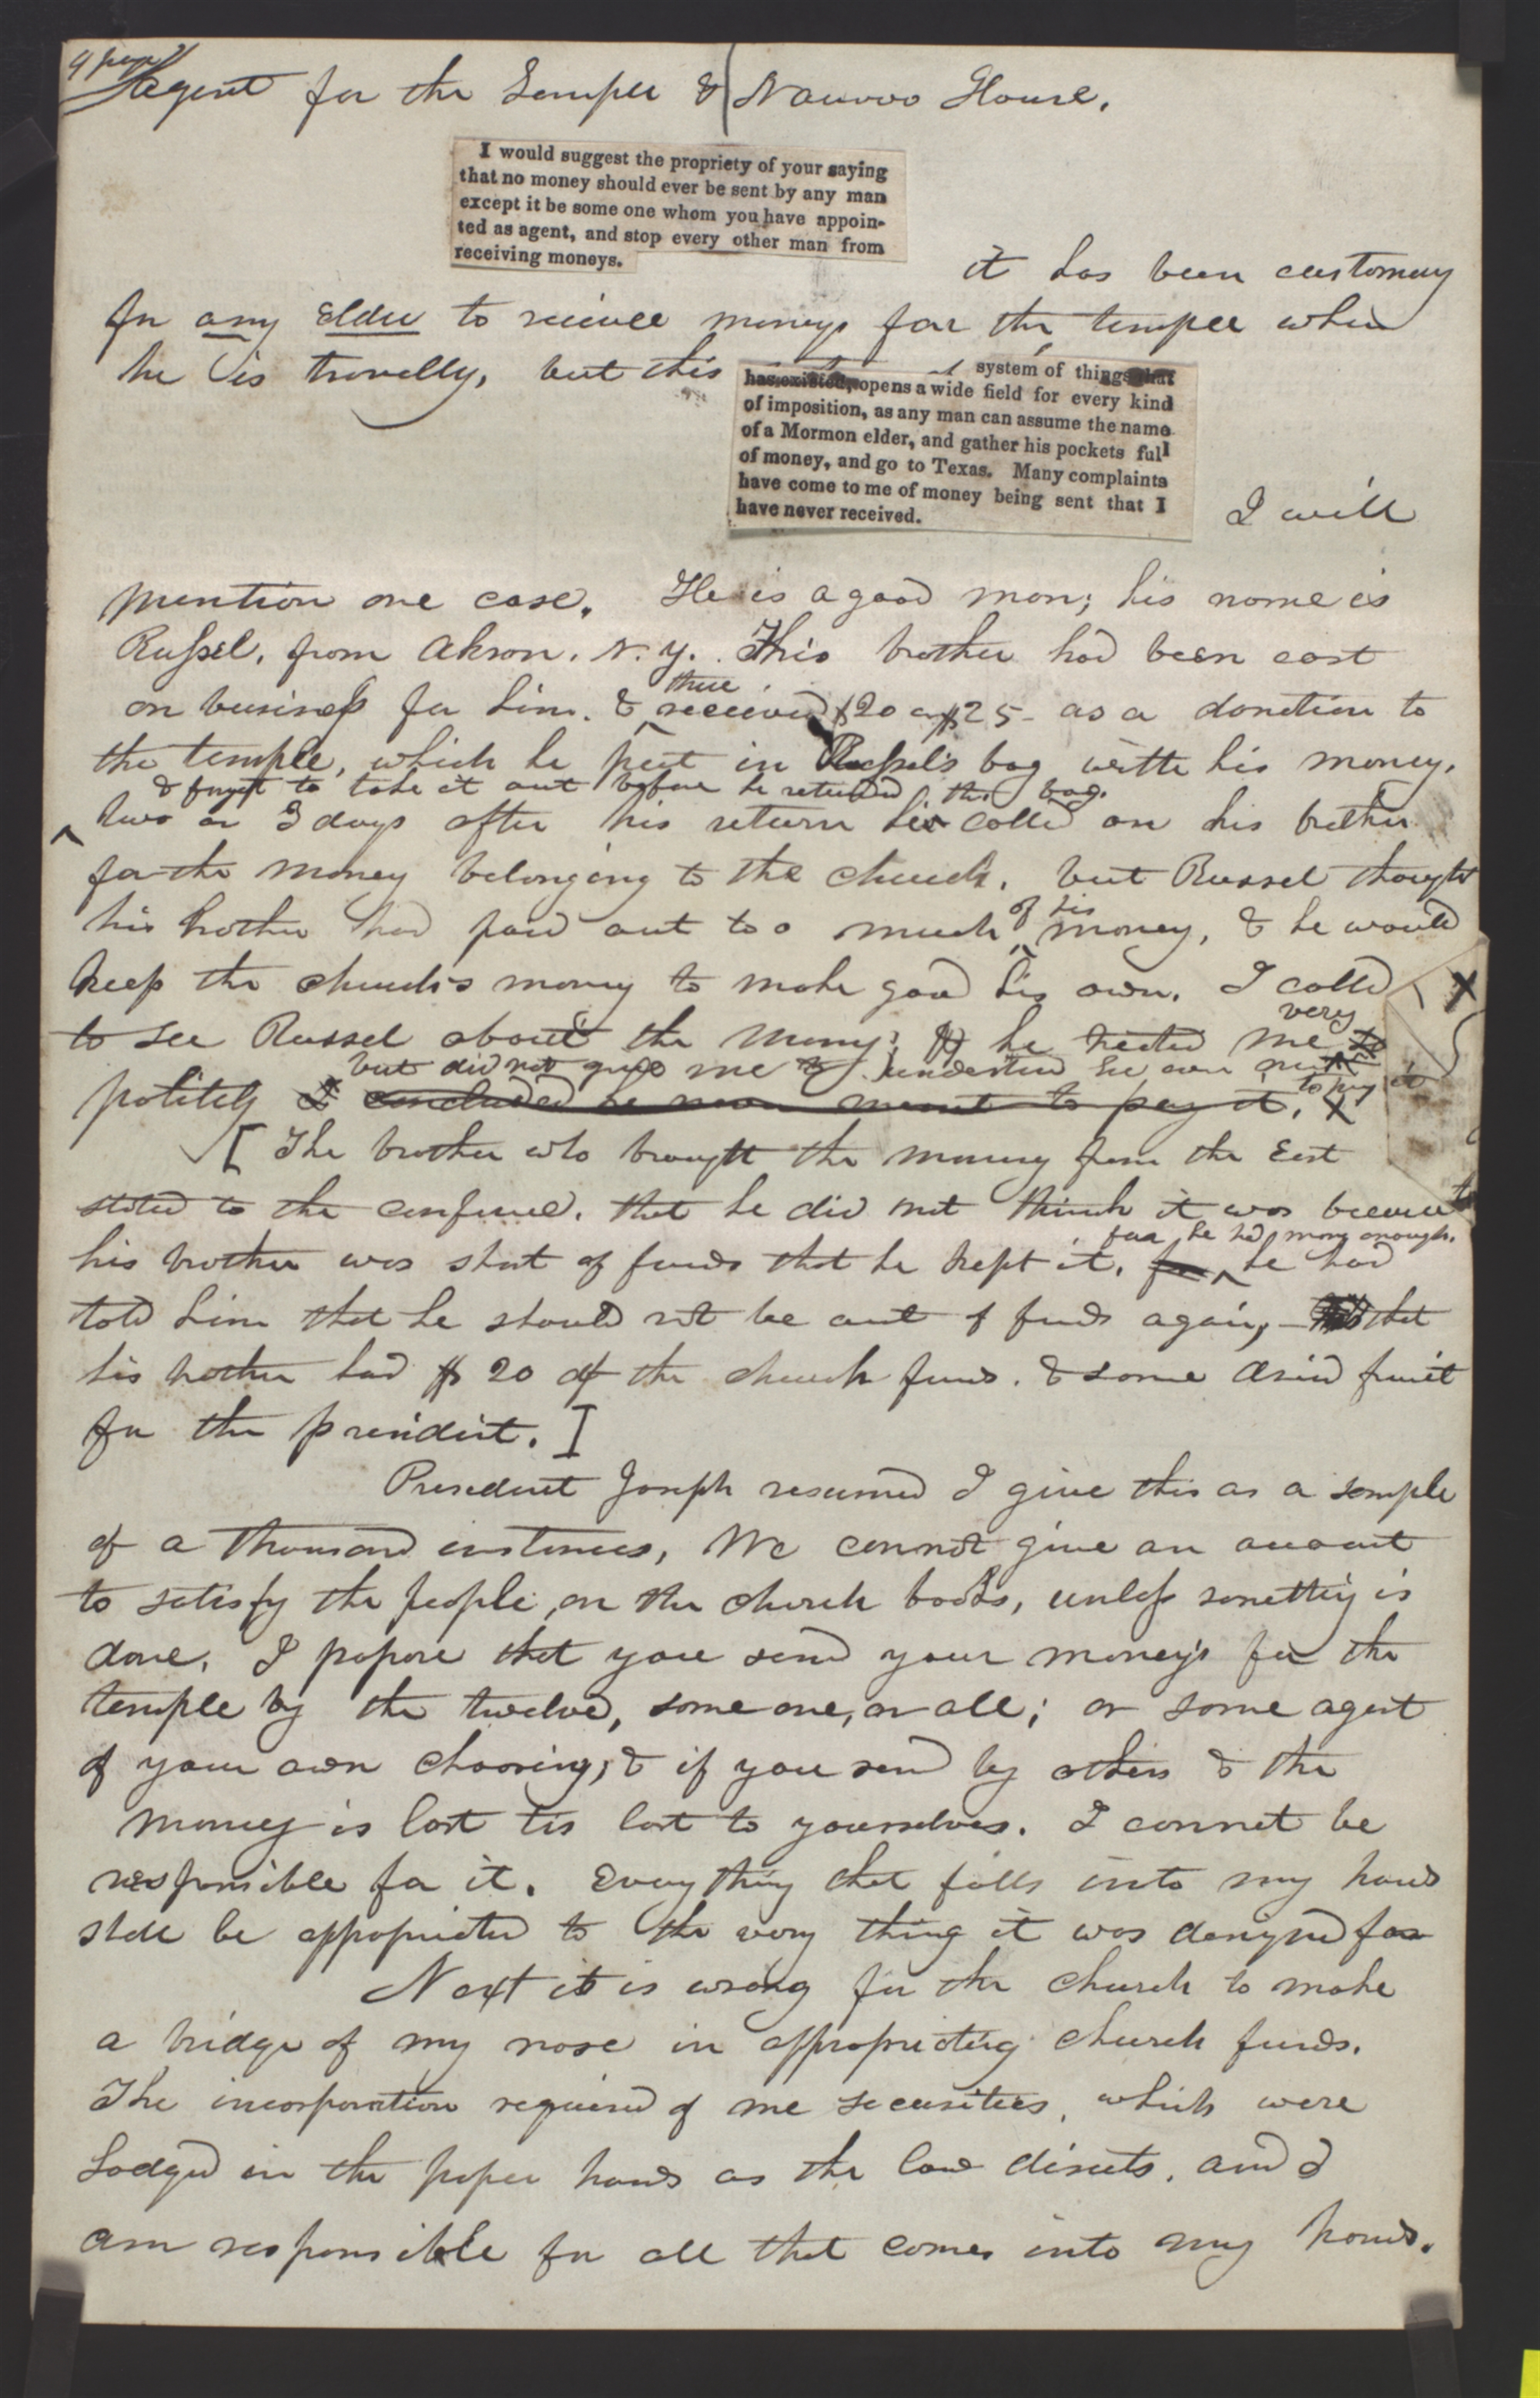 Agent for the Temple & Nauvoo House.
I would suggest the propriety of your saying
that no money should ever be sent by any man
except it be some one whom you have appoin-
ted as agent, and stop every other man from
receiving moneys.
it has been customary
for any Elder to recieve moneys for the temple when
he is travelly, but this
system of things that
has existed, opens a wide field for every kind
of imposition, as any man can assume the name
of a Mormon elder, and gather his pockets full
of money, and go to Texas. Many complaints
have come to me of money being sent that I
have never received.
I will
mention one case. He is a good man; his name is
Russel, from Akron. N. Y. This brother had been east
three
on business for him. & received $20 or $25- as a donation to
the temple, which he put in Russel's bag with his money.
& forgot to take it out before he returned the bag.
two or 3 days after his return he called on his brother
for the money belonging to the church. but Russel thought
of his
his brother had paid out too much money, & he would
keep the church's money to make good his own. I called
very
to see Russel about the money; he treated me
but did not give me to understand he ever meant
politely I concluded he never meant to pay it. to pay it
The brother who brought the money from the East
stated to the conference. that he did not think it was because
for he had money enough.
his brother was short of funds that he kept it. for he had
told him that he should not be out of funds again, that
his brother had $20 of the church funds. & some dried fruit
for the president.
President Joseph resumed I give this as a sample
of a thousand instances, We cannot give an account
to satisfy the people, on the church books, unless something is
done. I propose that you send your moneys for the
temple by the twelve, some one, or all; or some agent
of your own choosing; & if you send by others & the
money is lost tis lost to yourselves. I cannot be
responsible for it. Every thing that falls into my hands
shall be appropriated to the very thing it was designed for
Next it is wrong for the church to make
a bridge of my nose in appropriating church funds.
The incorporation required of me securities, which were
Lodged in the proper hands as the law directs. and I
am responsible for all that comes into my hands.